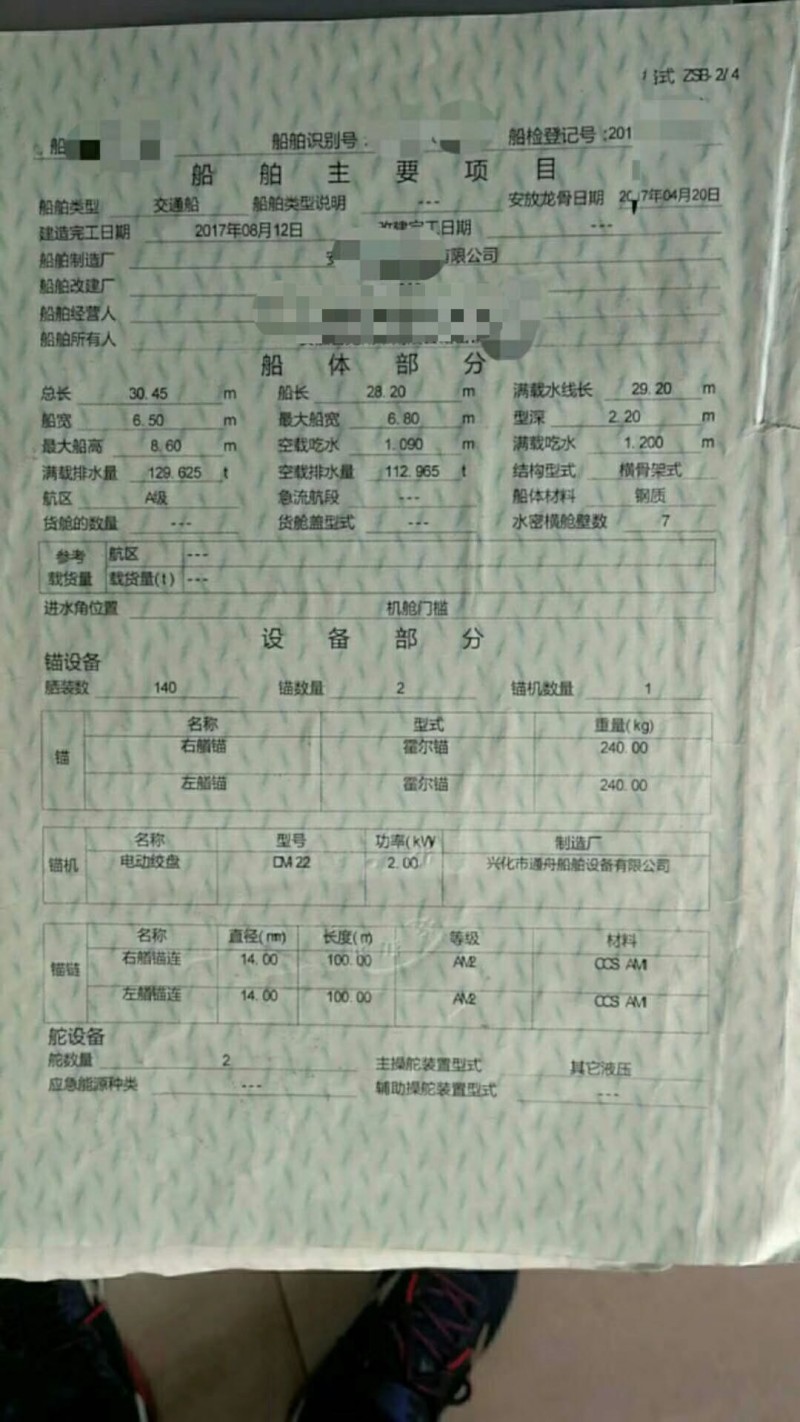 式 ZSB-2/4
船 船舶识别号: 船检登记号:201
船舶主要项目
船舶类型 交通船 船舶类型说明 --- 安放龙骨日期 2017年04月20日
建造完工日期 2017年08月12日 改建完工日期 ---
船舶制造厂 有限公司
船舶改建厂 ---
船舶经营人
船舶所有人
船体部分
总长 30.45 m 船长 28.20 m 满载水线长 29.20 m
船宽 6.50 m 最大船宽 6.80 m 型深 2.20 m
最大船高 8.60 m 空载吃水 1.090 m 满载吃水 1.200 m
满载排水量 129.625 t 空载排水量 112.965 t 结构型式 横骨架式
航区 A级 急流航段 --- 船体材料 钢质
货舱的数量 --- 货舱盖型式 --- 水密横舱壁数 7
参考 航区 ---
载货量 载货量(t) ---
进水角位置 机舱门槛
设备部分
锚设备
舾装数 140 锚数量 2 锚机数量 1
锚 名称 型式 重量(kg)
右艏锚 霍尔锚 240.00
左艏锚 霍尔锚 240.00
锚机 名称 型号 功率(kW 制造厂
电动绞盘 DM22 2.00 兴化市通舟船舶设备有限公司
锚链 名称 直径(mm) 长度(m) 等级 材料
右艏锚连 14.00 100.00 AM2 CCS AM1
左艏锚连 14.00 100.00 AM2 CCS AM1
舵设备
舵数量 2 主操舵装置型式 其它液压
应急能源种类 --- 辅助操舵装置型式 ---